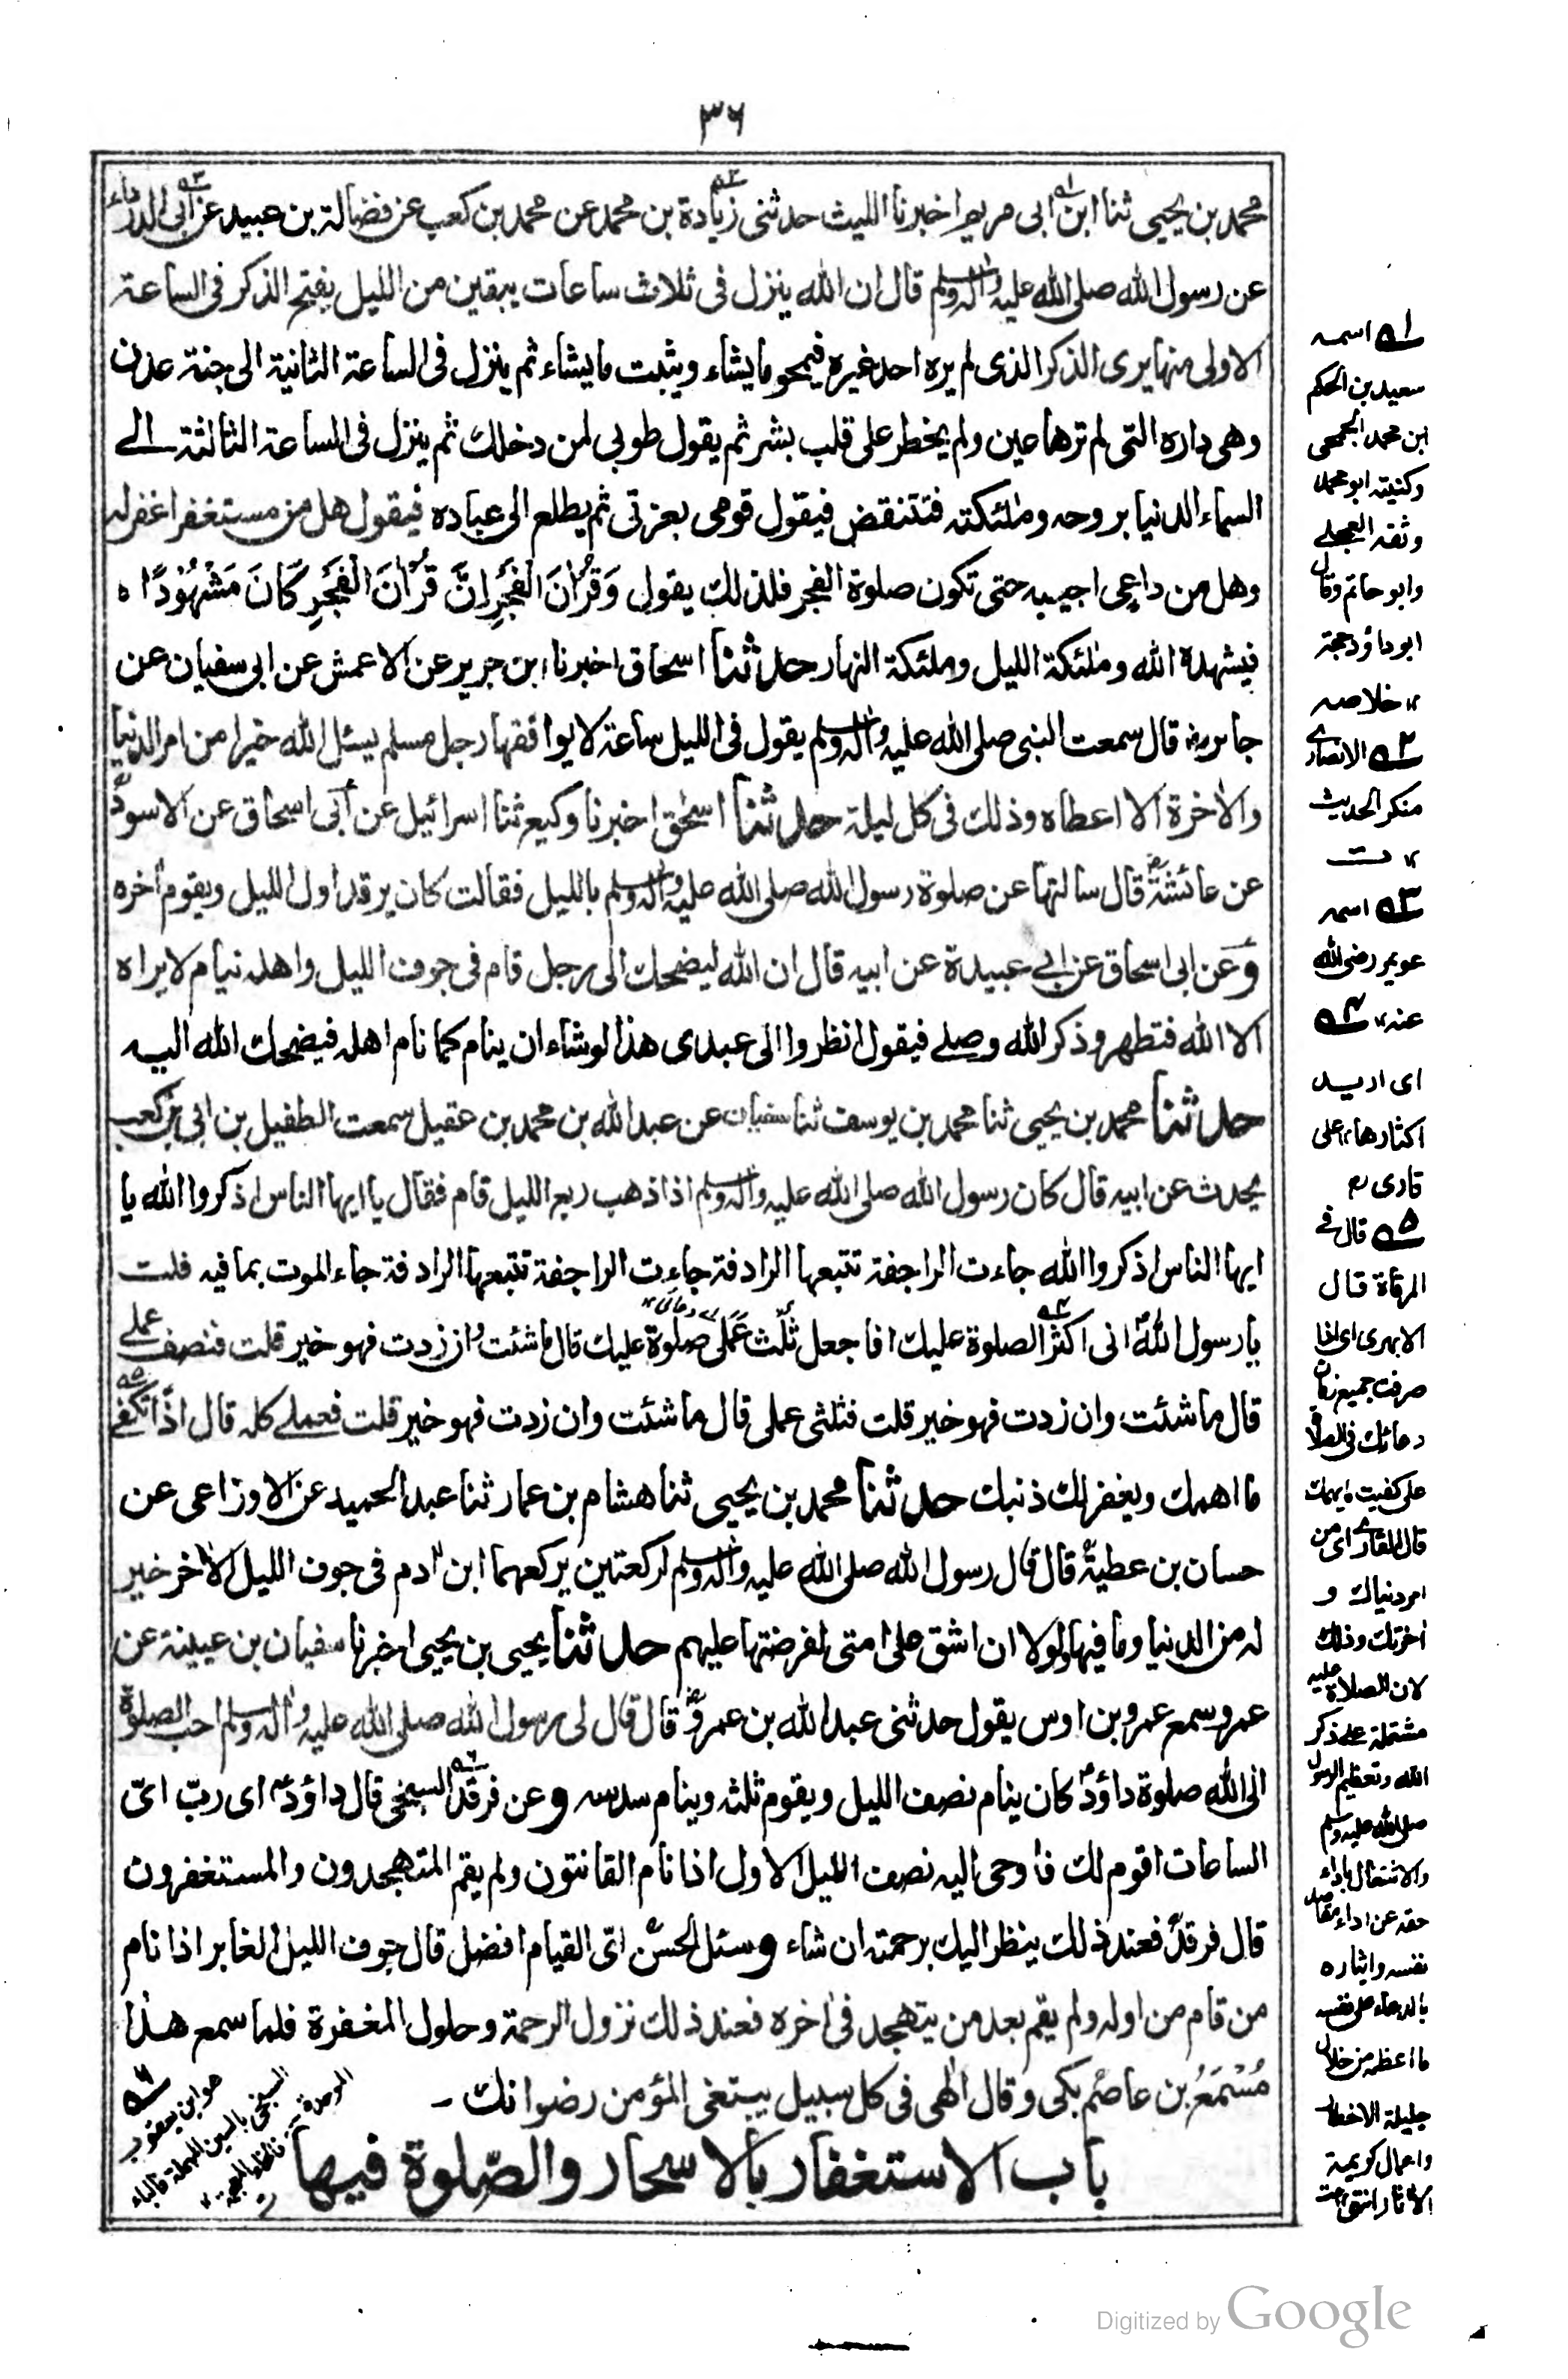 ٣٦
محمد بن يحيى ثنا ابن ابى مريم اخبرنا الليث حدثنى زيادة بن محمد عن محمد بن كعب عن فضالة بن عبيد عن ابى الدرداء
عن رسول الله صلى الله عليه واله وسلم قال ان الله ينزل فى ثلاث ساعات يبقين من الليل يفتح الذكر فى الساعة
الاولى منها يرى الذكر الذى لم يره احد غيره فيمحو ما يشاء ويثبت ما يشاء ثم ينزل فى الساعة الثانية الى جنة عدن
وهى داره التى لم ترها عين ولم يخطر على قلب بشر ثم يقول طوبى لمن دخلك ثم ينزل فى الساعة الثالثة الے
السماء الدنيا بروحه وملئكته فتنتقض فيقول قومى بعزتى ثم يطلع الى عباده فيقول هل من مستغفر اغفر له
وهل من داعى اجيبه حتى تكون صلوة الفجر فلذلك يقول وَقُرْاٰنَ الْفَجْرِ اِنَّ قُرْاٰنَ الْفَجْرِ كَانَ مَشْهُوْدًا ه
فيشهده الله وملئكة الليل وملئكة النهار حدثنا اسحاق اخبرنا ابن جرير عن الاعمش عن ابى سفيان عن
جابر رض قال سمعت النبى صلى الله عليه واله وسلم يقول فى الليل ساعة لا يوافقها رجل مسلم يسئل الله خيرا من امر الدنيا
والاخرة الا اعطاه وذلك فى كل ليلة حدثنا اسحٰق اخبرنا وكيع ثنا اسرائيل عن ابى اسحاق عن الاسود
عن عائشة رض قال سالتها عن صلوة رسول الله صلى الله عليه واله وسلم بالليل فقالت كان يرقد اول الليل ويقوم اخره
وعن ابى اسحاق عن ابے عبيدة عن ابيه قال ان الله ليضحك الى رجل قام فى جوف الليل واهله نيام لا يراه
الا الله فتطهر وذكر الله وصلے فيقول انظروا الى عبدى هذا لو شاء ان ينام كما نام اهله فيضحك الله اليه
حدثنا محمد بن يحيى ثنا محمد بن يوسف ثنا سفيان عن عبد الله بن محمد بن عقيل سمعت الطفيل بن ابى بن كعب
يحدث عن ابيه قال كان رسول الله صلى الله عليه واله وسلم اذا ذهب ربع الليل قام فقال يا ايها الناس اذكروا الله يا
ايها الناس اذكروا الله جاءت الراجفة تتبعها الرادفة جاءت الراجفة تتبعها الرادفة جاء الموت بما فيه قلت
يا رسول الله انى اكثر الصلوة عليك افاجعل ثلث عملى صلوة عليك قال ما شئت وان زدت فهو خير قلت فنصف عملے
قال ما شئت وان زدت فهو خير قلت فثلثى عملى قال ما شئت وان زدت فهو خير قلت فعملے كله قال اذًا تكفے
ما اهمك ويغفر لك ذنبك حدثنا محمد بن يحيى ثنا هشام بن عمار ثنا عبد الحميد عن الاوزاعى عن
حسان بن عطية قال قال رسول الله صلى الله عليه واله وسلم لركعتين يركعهما ابن ادم فى جوف الليل الاخر خير
له من الدنيا وما فيها ولولا ان اشق على امتى لفرضتها عليهم حدثنا يحيى بن يحيى اخبرنا سفيان بن عيينة عن
عمرو سمع عمرو بن اوس يقول حدثنى عبد الله بن عمرو قال قال لى رسول الله صلى الله عليه واله وسلم احب الصلوة
الى الله صلوة داؤد كان ينام نصف الليل ويقوم ثلثه وينام سدسه وعن فرقد السبخى قال داؤد اى ربّ اىّ
الساعات اقوم لك فاوحى اليه نصف الليل الاول اذا نام القانتون ولم يقم المتهجدون والمستغفرون
قال فرقد فعند ذلك ينظر اليك برحمته ان شاء وسئل الحسن اىّ القيام افضل قال جوف الليل الغابر اذا نام
من قام من اوله ولم يقم بعد من يتهجد فى اخره فعند ذلك نزول الرحمة وحلول المغفرة فلما سمع هذا
مُسْمَعُ بن عاصم بكى وقال الٰهى فى كل سبيل يبتغى المؤمن رضوانك -
باب الاستغفار بالاسحار والصّلوة فيها
٦ هو ابن يعقوب
السبخى بالسين المهملة فالباء
الموحدة فالخاء المعجمة
١ اسمه
سعيد بن الحكم
ابن محمد الجمحى
وكنيته ابو محمد
وثقه العجلے
وابو حاتم وقال
ابو داؤد حجة
١٢ خلاصه
٢ الانصارے
منكر الحديث
١٢ ت
٣ اسمه
عويمر رضى الله
عنه ١٢ ٤
اى اريد
اكثارها ١٢ على
قارى رح
٥ قال فے
المرقاة قال
الابهرى اى اذا
صرفت جميع زمان
دعائك فى الصلاة
على كفيت ما يهمك
قال القارے اى من
امر دنياك و
اخرتك وذلك
لان الصلاة عليه
مشتملة علے ذكر
الله وتعظيم الرسول
صلى الله عليه وسلم
والاشتغال باداء
حقه عن اداء مقاصد
نفسه وايثاره
بالدعاء على نفسه
ما اعظم من خلال
جليلة الاخطار
واعمال كريمة
الاثار انتهى
Digitized by Google